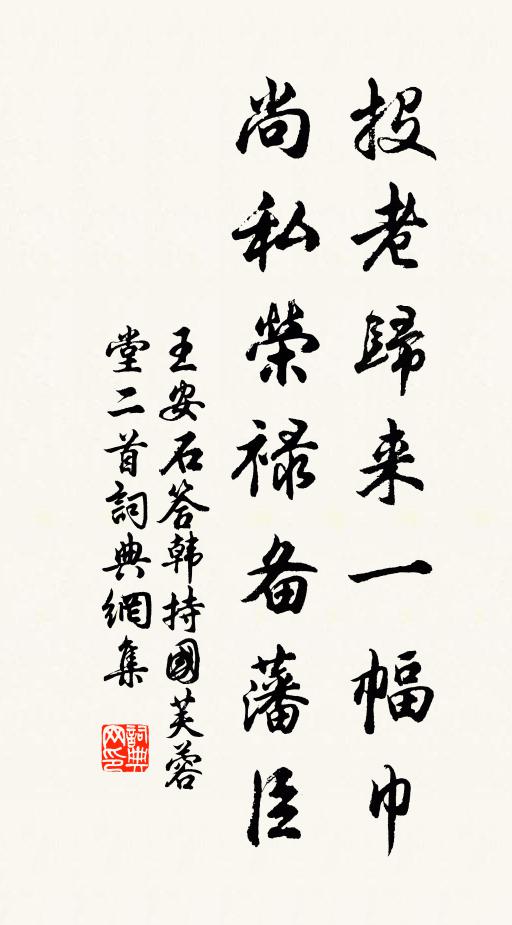 投老歸来一幅巾
尚私榮禄备藩臣
王安石答韩持國芙蓉
堂二首詞典網集
詞典
网印